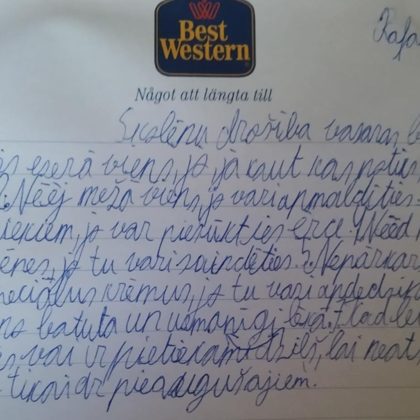 Best
Western
Något att längta till
Rafa
Skolēnu drošība vasaras b
ezerā viens, jo ja kaut kas notiks
Neej mežā viens, jo vari apmaldīties
jo var piesūkties ērce. Neēd
ēnes, jo tu vari saindēties
speciālus krēmus, jo tu vari apdedzin
batuta un uzmanīgi lēkā, tad
var ir pietiekami dziļš, lai
tikai ar pieaugušajiem.